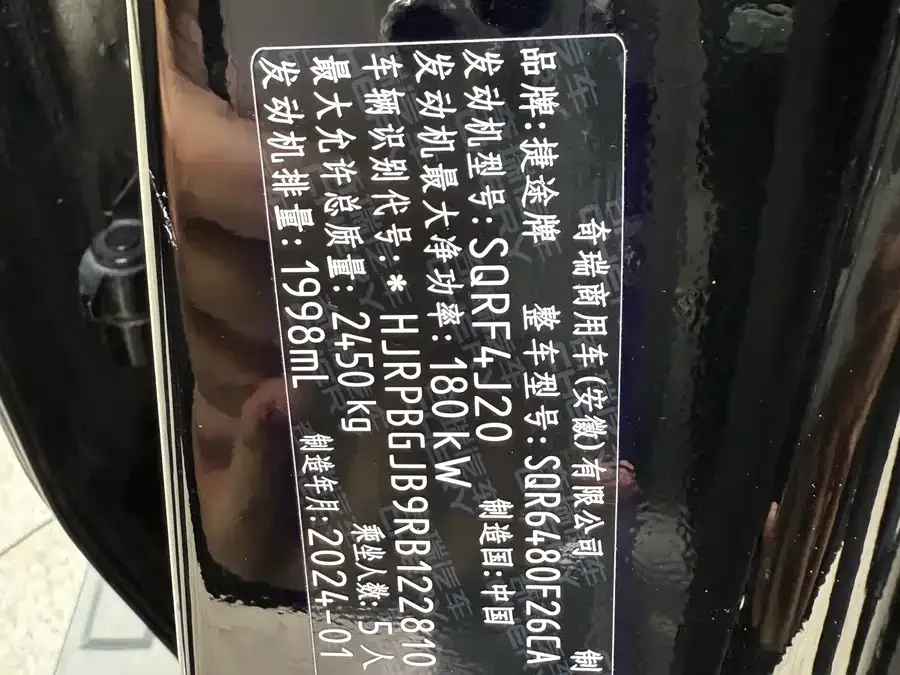 奇瑞商用车(安徽)有限公司 制
品牌:捷途牌 整车型号:SQR6480F26CA
发动机型号:SQRF4J20 制造国:中国
发动机最大净功率:180kW
车辆识别代号:*HJRPBGJB9RB122810
最大允许总质量:2450kg 乘坐人数:5人
发动机排量:1998mL 制造年月:2024-01